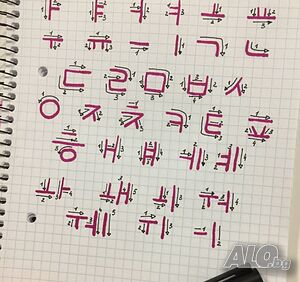 ㅏ ㅑ ㅓ ㅕ ㅗ ㅛ
ㅜ ㅠ ㅡ ㅣ ㄱ ㄴ
ㄷ ㄹ ㅁ ㅂ ㅅ
ㅇ ㅈ ㅋ ㅌ
ㅎ ㅐ ㅒ ㅔ ㅖ
ㅘ ㅙ ㅚ ㅝ
ㅞ ㅟ ㅢ
ALO.bg